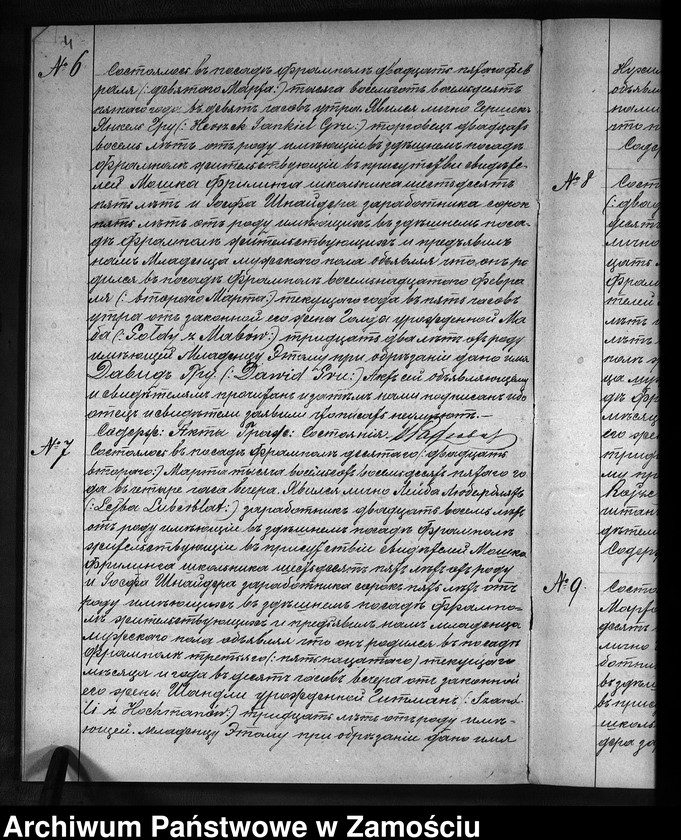 4
№ 6
Состоялось въ посадѣ Фрамполь двадцать пятаго Фев
раля (: девятаго Марта:) тысяча восемьсотъ восемьдесятъ
пятаго года въ девять часовъ утра. Явился лично Гершекъ
Янкель Гру (: Herszek Jankiel Gru:) торговецъ двадцать
восемь лѣтъ отъ роду имѣющій въ здѣшнемъ посадѣ
Фрамполь жительствующій въ присутствіи свидѣте-
лей Мошка Фрилинга школьника шестьдесятъ
пять лѣтъ и Іосфа Шнайдера заработника сорок
пять лѣтъ отъ роду имѣющихъ въ здѣшнемъ поса-
дѣ Фрамполь жительствующихъ и предъявилъ
намъ Младенца мужескаго пола объявляя что онъ ро
дился въ посадѣ Фрамполь восемнадцатаго Февра
ля (: втораго Марта:) текущаго года въ пять часовъ
утра отъ законной его жены Голда урожденной Ма
ба (: Gołdy z Mabów:) тридцать два лѣтъ отъ роду
имѣющей Младенцу Этому при обрѣзаніи дано имя
Давидъ Гру (: Dawid Gru:) Актъ сей объявляющему
и свидѣтелямъ прочитанъ и затѣмъ нами подписанъ ибо
отецъ и свидѣтели заявили что писать неумѣютъ.—
Содерж: Акты Гражд: Состоянія.
№ 7
Состоялось въ посадѣ Фрамполь десятаго (: двадцать
втораго:) Марта тысяча восемьсотъ восемьдесятъ пятаго го-
да въ четыре часа вечера. Явился лично Лейба Люберблятъ
(: Lejba Luberblat:) заработникъ двадцать восемь лѣтъ
отъ роду имѣющій въ здѣшнемъ посадѣ Фрамполь
жительствующій въ присутствіи свидѣтелей Мошка
Фрилинга школьника шестьдесятъ пять лѣтъ отъ роду
и Іосфа Шнайдера заработника сорокъ пять лѣтъ отъ
роду имѣющихъ въ здѣшнемъ посадѣ Фрампо-
лѣ жительствующихъ и предъявилъ намъ младенца
мужескаго пола объявляя что онъ родился въ посадѣ
Фрамполь третьяго (: пятнацатаго) текущаго
мѣсяца и года въ десять часовъ вечера отъ законной
его жены Шандли урожденной Гитманъ (: Szand-
li z Hochmanów:) тридцать лѣтъ отъ роду имѣ-
ющей. Младенцу Этому при обрѣзаніи дано имя
№ 8
Сост
(: двад
десять
лично
цать
Фрам
телей
лѣтъ
№ 9
Состо
Марта
десять
лично
ботни
въ здѣш
въ прис
школь
дера за
Archiwum Państwowe w Zamościu